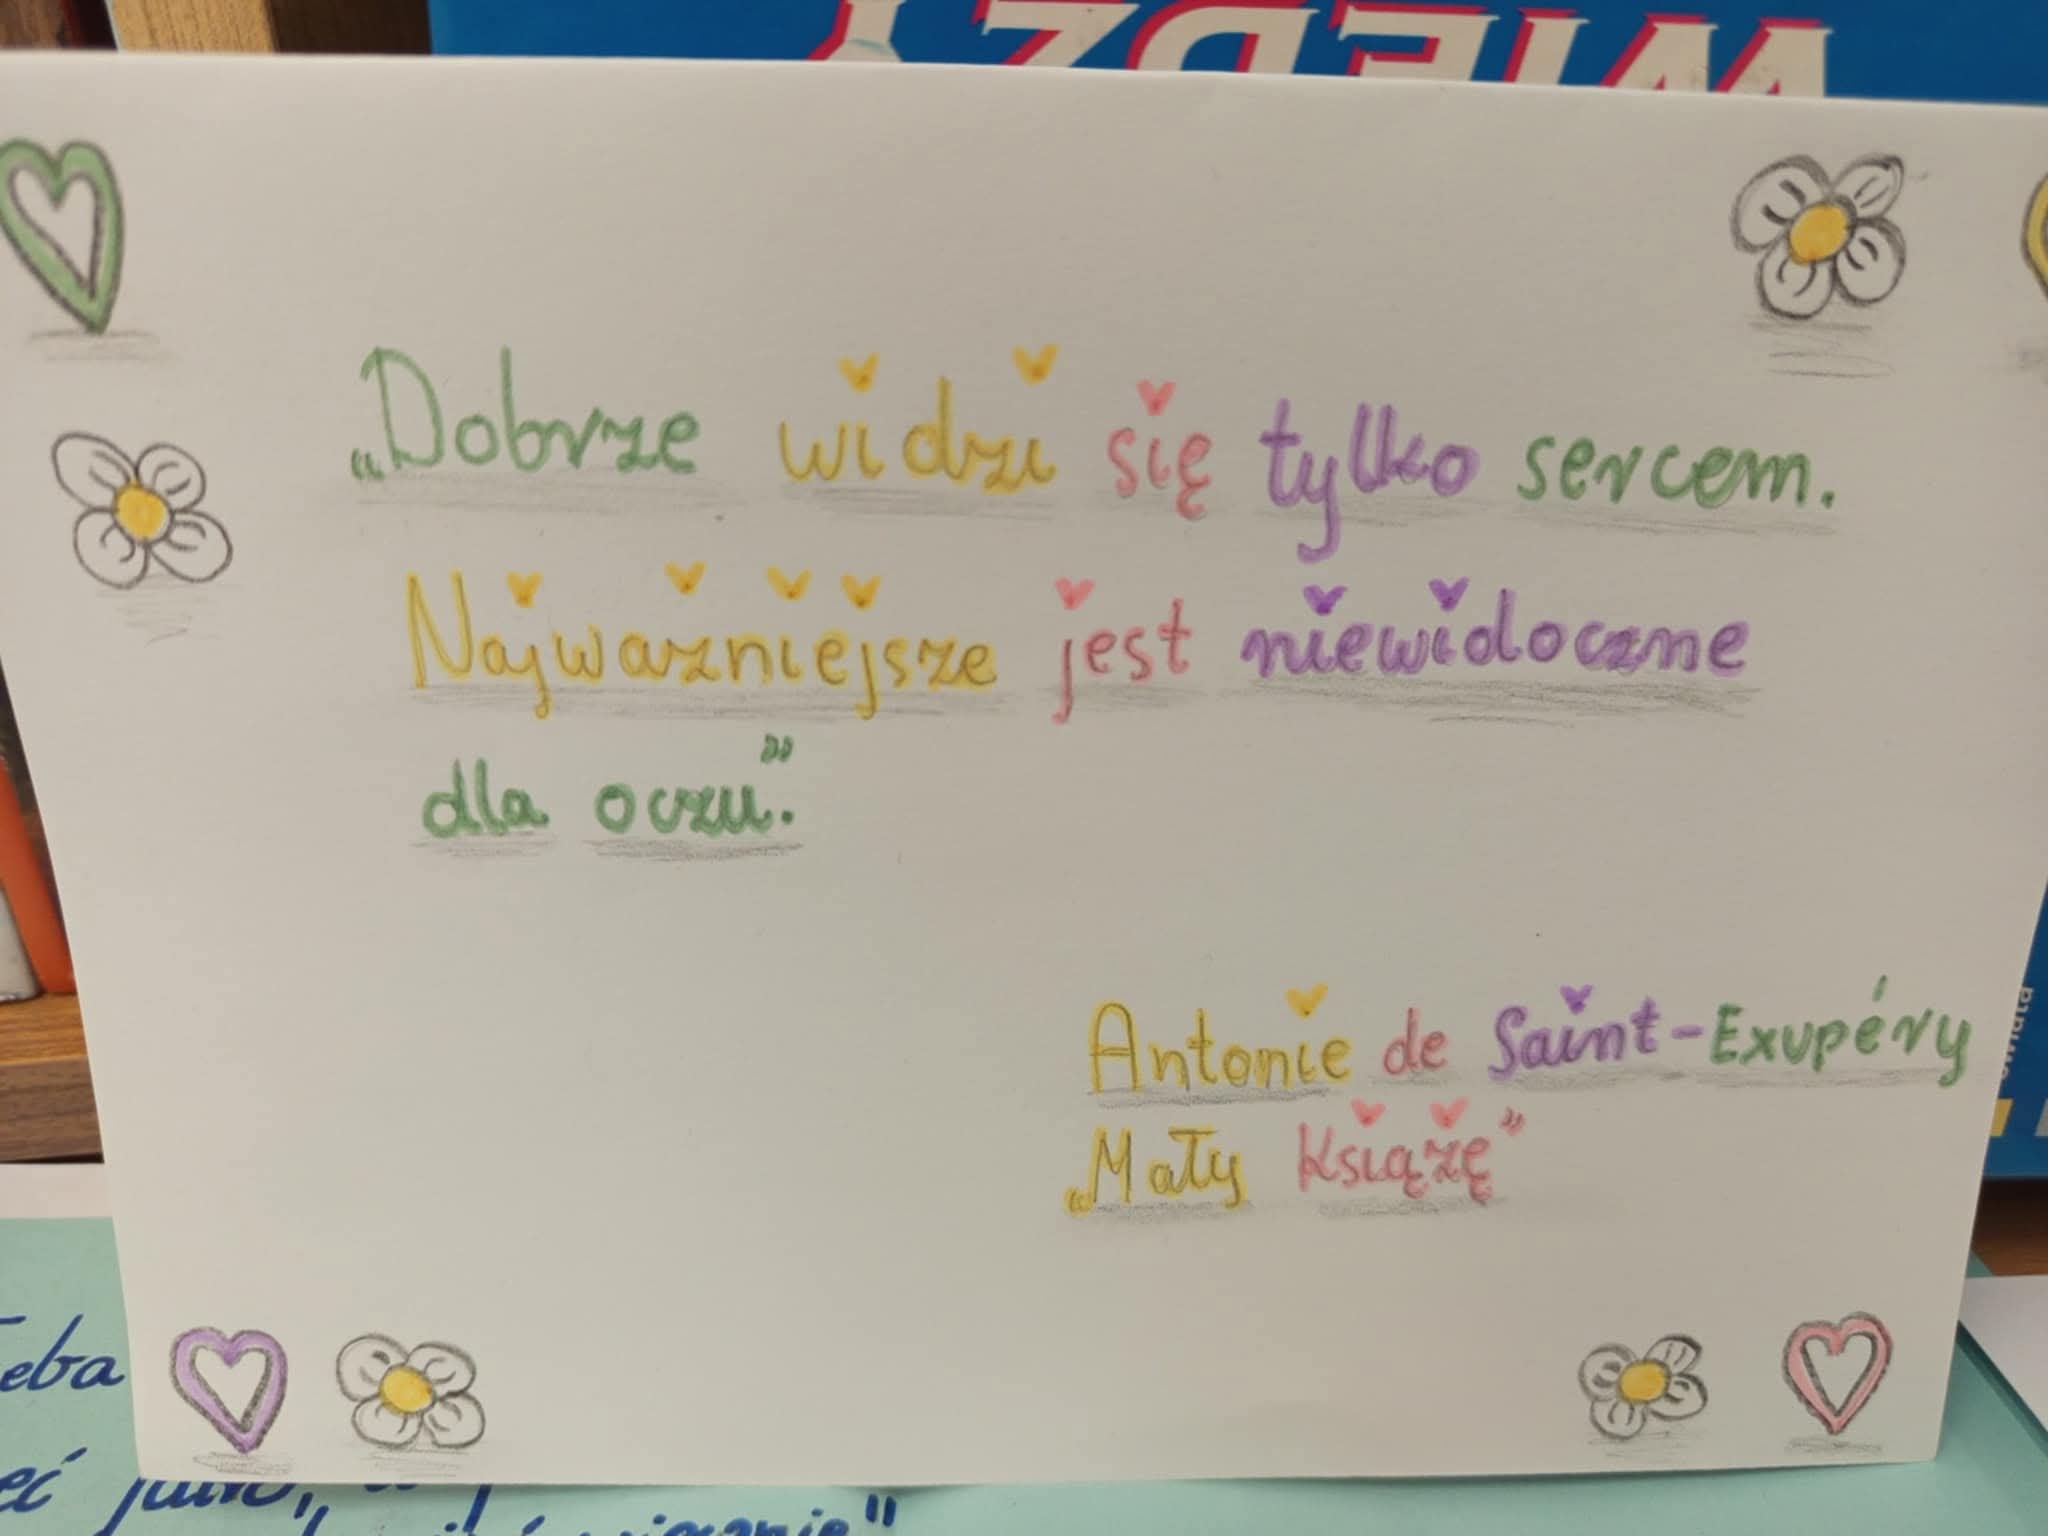 WIEDZY
„Dobrze widzi się tylko sercem.
Najważniejsze jest niewidoczne
dla oczu.”
Antonie de Saint-Exupéry
„Mały Książę”